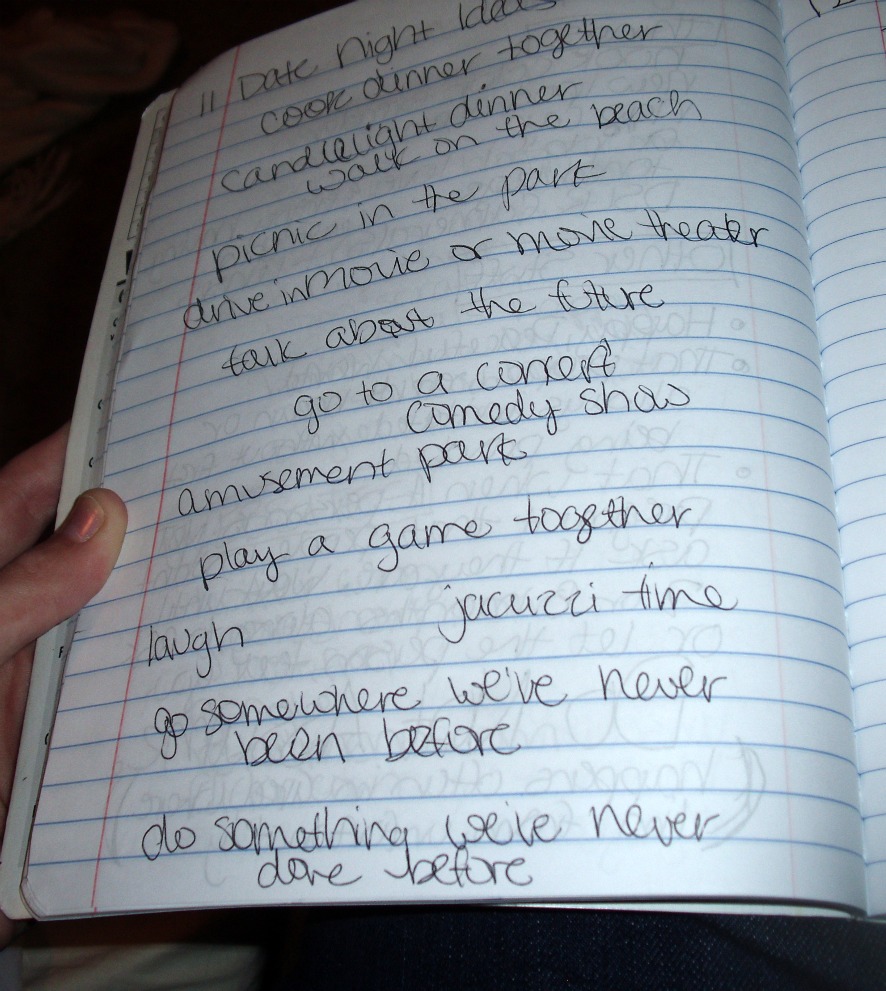 11 Date Night Ideas
cook dinner together
candlelight dinner
walk on the beach
picnic in the park
drive in movie or movie theater
talk about the future
go to a concert
comedy show
amusement park
play a game together
jacuzzi time
laugh
go somewhere we've never
been before
do something we've never
done before